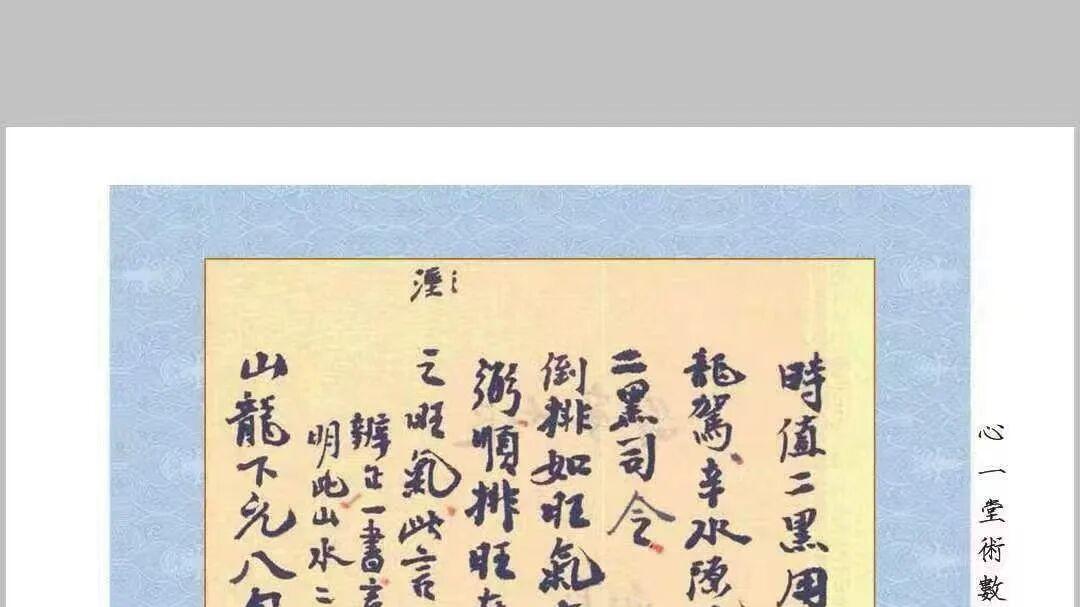 時值二黑用
龍駕辛水
二黑司令
倒排如旺氣
弼順排旺
之旺氣此言
辨正一書言
明此山水二
山龍下元八
心一堂術數